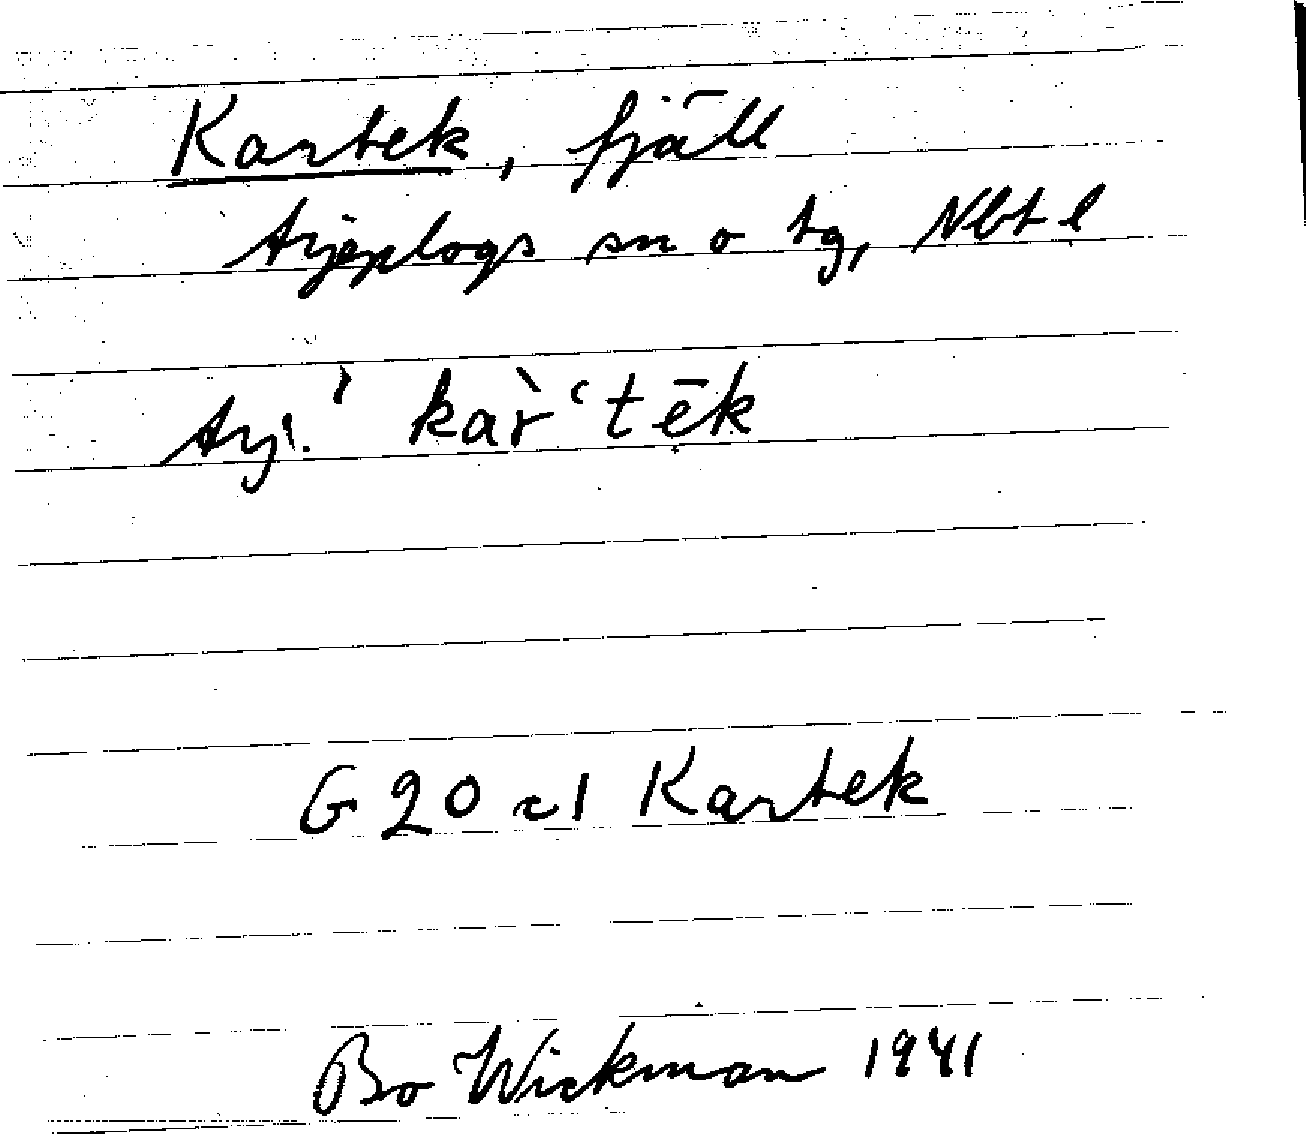 Kartek, fjäll
Arjeplogs sn o tg, Nbt l
Arj.' kar̀‘tēk
G 20 c1 Kartek
Bo Wickman 1941